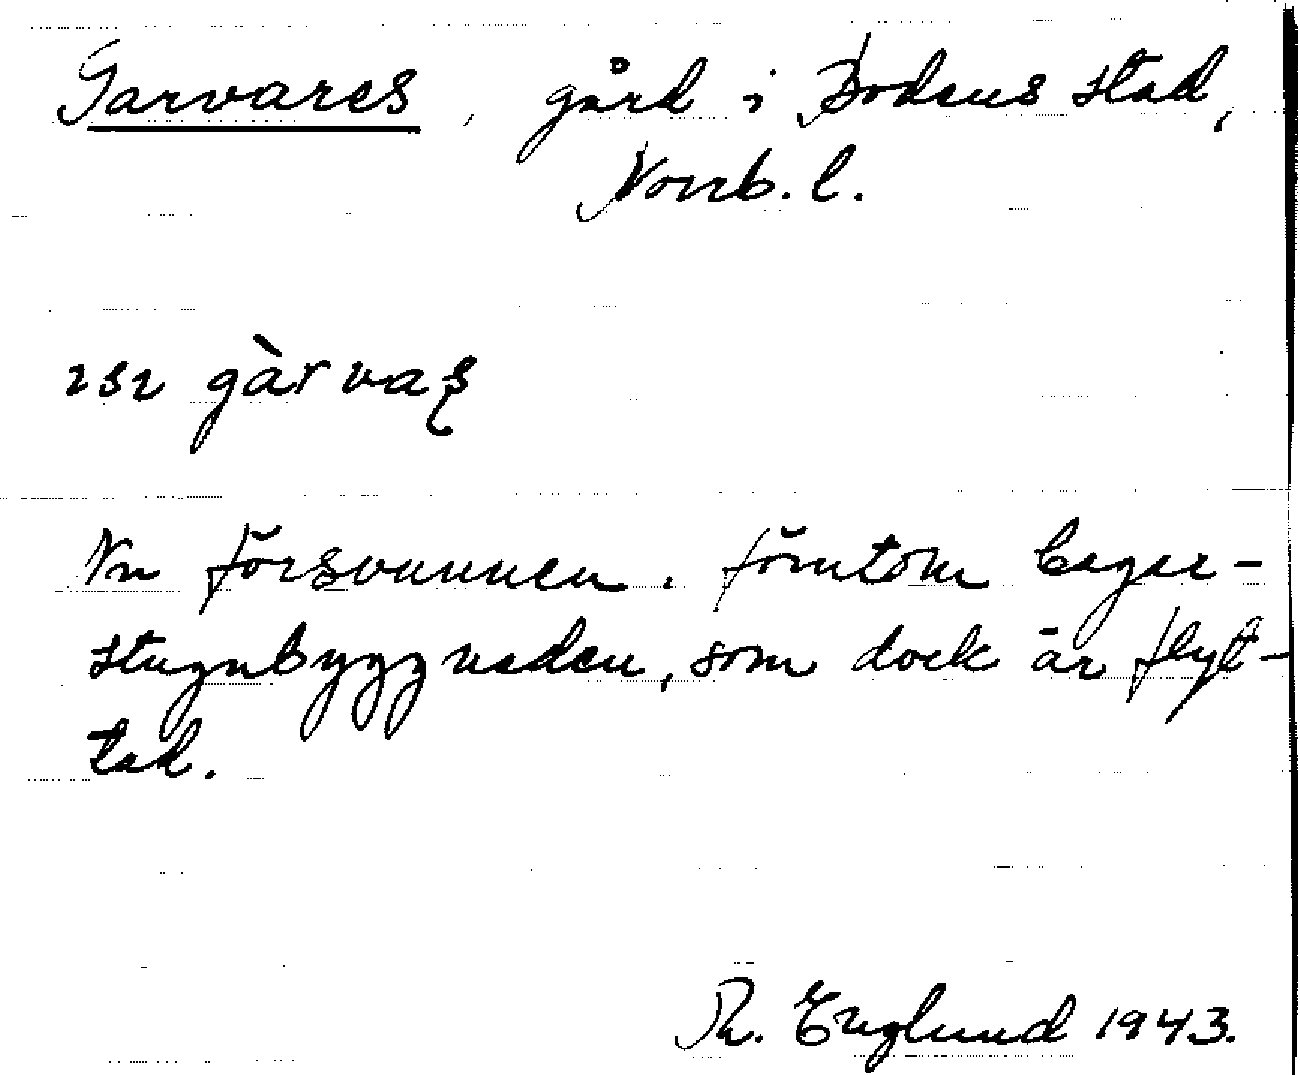 Garvares, gård i Bodens stad,
Norrb. l.
ısı gàrvaş
Nu försvunnen. förutom bager-
stugubyggnaden, som dock är flyt-
tad.
R. Englund 1943.